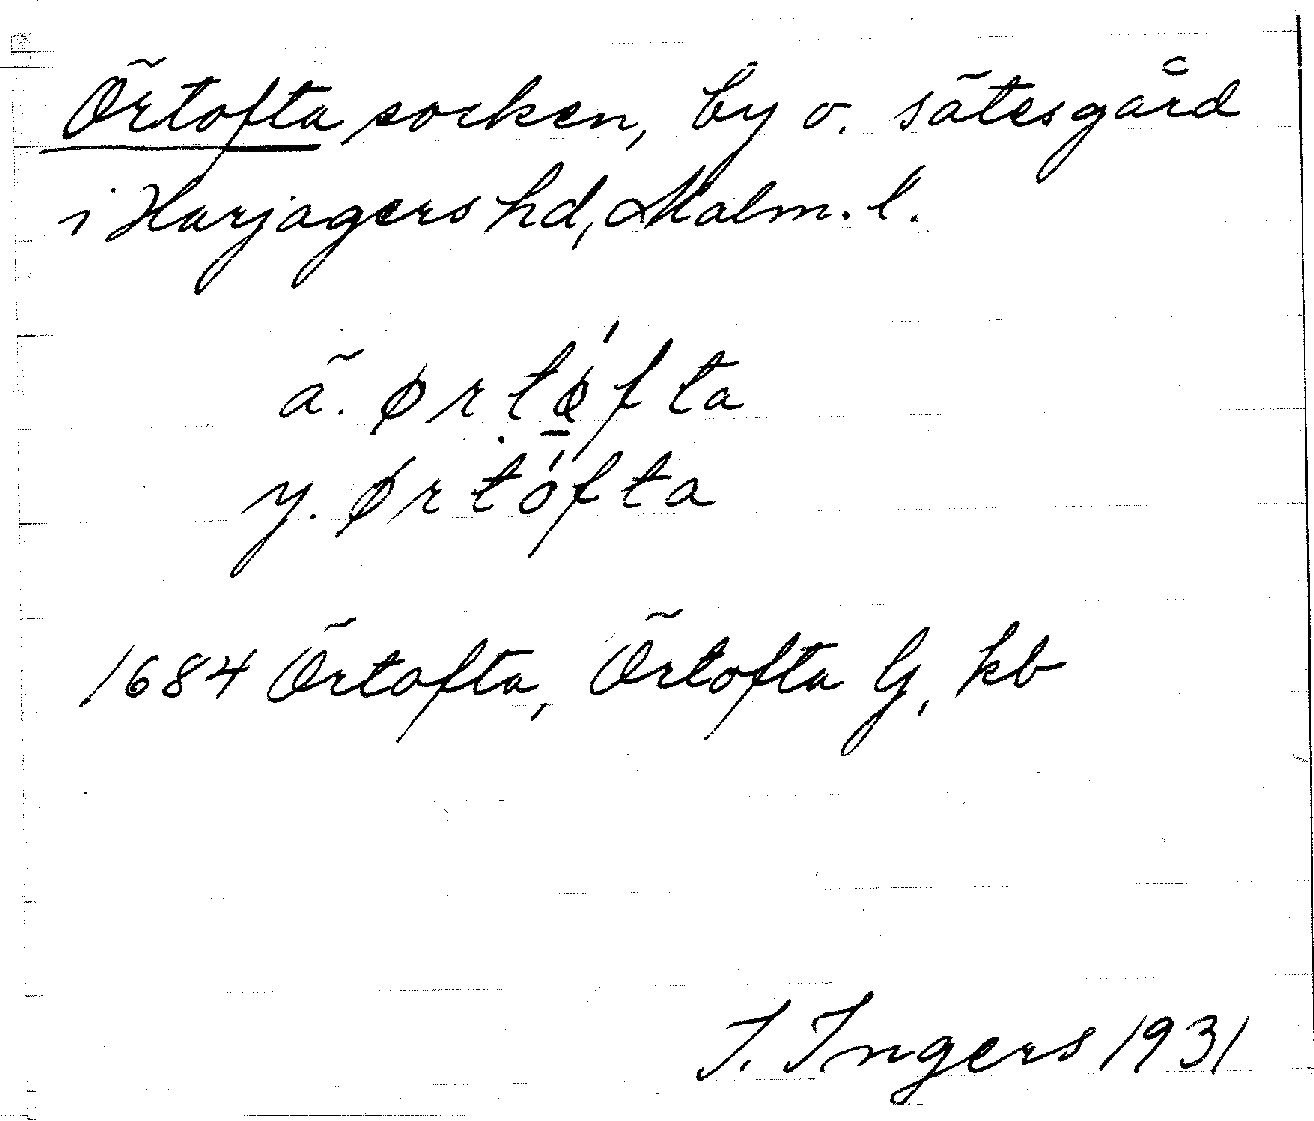 Örtofta socken, by o. sätesgård
i Harjagers hd, Malm. l.
ä. ørtǿ̱fta
y. ørtófta
1684 Örtofta, Örtofta G, kb
I. Ingers 1931